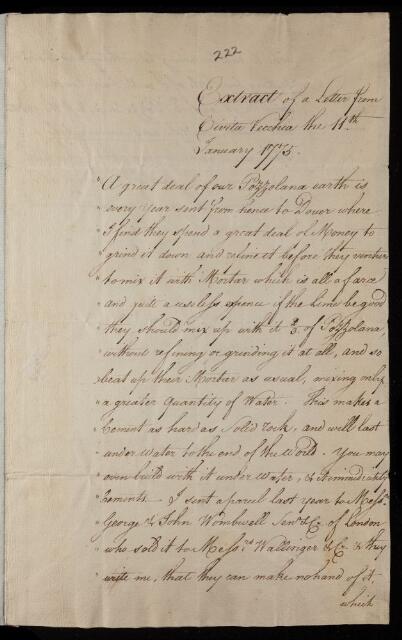 222
Extract of a Letter from
Civita Vecchia the 11th
January 1775.
"A great deal of our Pozzolana earth is
"every year sent from hence to Dover where
"I find they spend a great deal of Money to
"grind it down and refine it before they venture
"to mix it with Mortar which is all a farce
"and quite a useless expence if the Lime be good
"they should mix up with it of Pozzolana,
"without refining or grinding it at all, and so
"beat up their Mortar as usual, mixing only
"a greater quantity of Water. This makes a
"Cement as hard as solid rock, and will last
"under Water to the end of the World. You may
"even build with it under Water, & it immediately
"Cements. I sent a parcel last year to Messrs
"George & John Wombwell Senr & Co of London
"who sold it to Messrs Wallinger & Co & they
"write me, that they can make no hand of it,
which